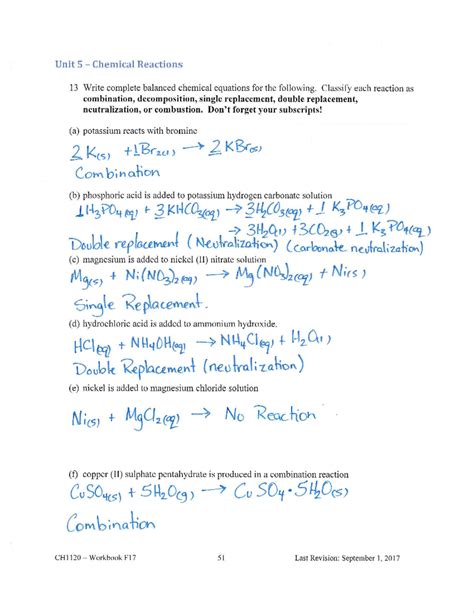 Unit 5 – Chemical Reactions
13 Write complete balanced chemical equations for the following. Classify each reaction as
combination, decomposition, single replacement, double replacement,
neutralization, or combustion. Don't forget your subscripts!
(a) potassium reacts with bromine
2 K(s) + 1Br2(l) → 2 KBr(s)
Combination
(b) phosphoric acid is added to potassium hydrogen carbonate solution
1H3PO4(aq) + 3KHCO3(aq) → 3H2CO3(aq) + 1 K3PO4(aq)
→ 3H2O(l) + 3CO2(g) + 1 K3PO4(aq)
Double replacement (Neutralization) (carbonate neutralization)
(c) magnesium is added to nickel (II) nitrate solution
Mg(s) + Ni(NO3)2(aq) → Mg(NO3)2(aq) + Ni(s)
Single Replacement.
(d) hydrochloric acid is added to ammonium hydroxide.
HCl(aq) + NH4OH(aq) → NH4Cl(aq) + H2O(l)
Double Replacement (neutralization)
(e) nickel is added to magnesium chloride solution
Ni(s) + MgCl2(aq) → No Reaction
(f) copper (II) sulphate pentahydrate is produced in a combination reaction
CuSO4(s) + 5H2O(g) → CuSO4·5H2O(s)
Combination
CH1120 – Workbook F17 51 Last Revision: September 1, 2017